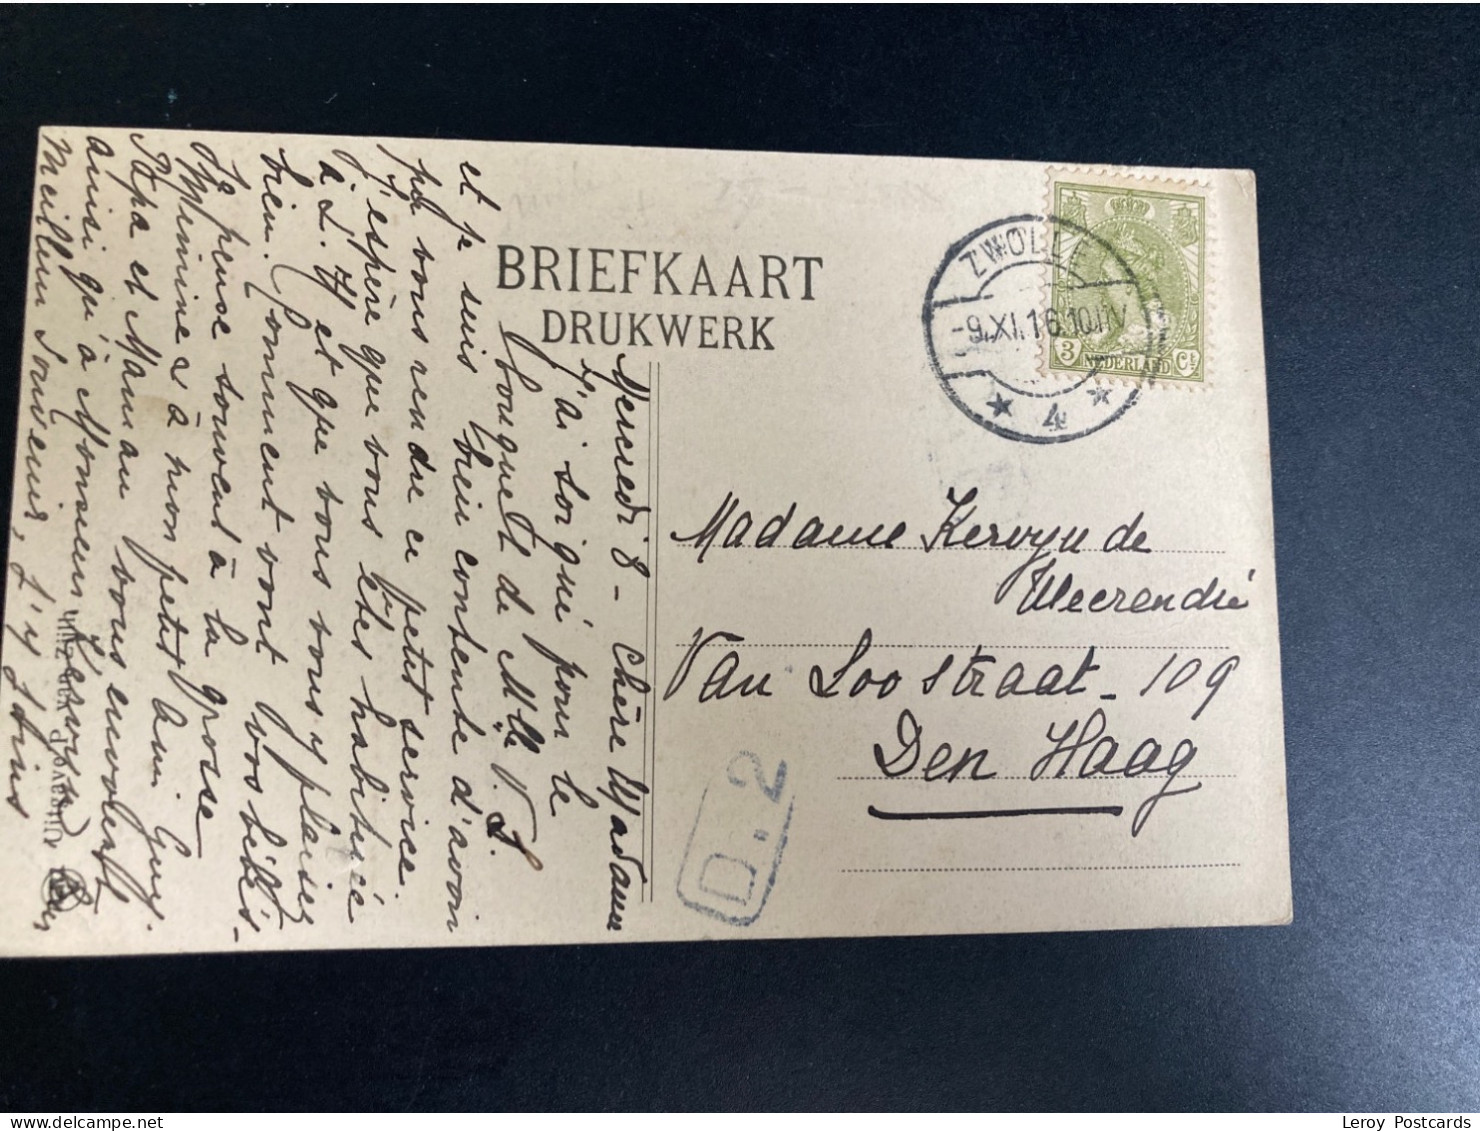 BRIEFKAART
DRUKWERK
ZWOLLE
-9.XI.16.10.11V
4
3 NEDERLAND Ct
Madame Kervyn de
Meerendré
Van Loostraat - 109
Den Haag
D. 2
Mercredi 8 - Chère Madame
J'ai soi qui pour le
bouquet de Mlle V. S.
et je suis bien contente d'avoir
pu vous rendre ce petit service.
J'espère que vous êtes habituée
à L. H et que vous vous y plaisez
bien. Comment vont vos bébés.
Je pense souvent à la grosse
Mimine & à mon petit ami Guy.
Papa et Maman vous envoient
ainsi qu'à Monsieur Kervyn
Meilleur Souvenir, J'y joins
Leroy Postcards